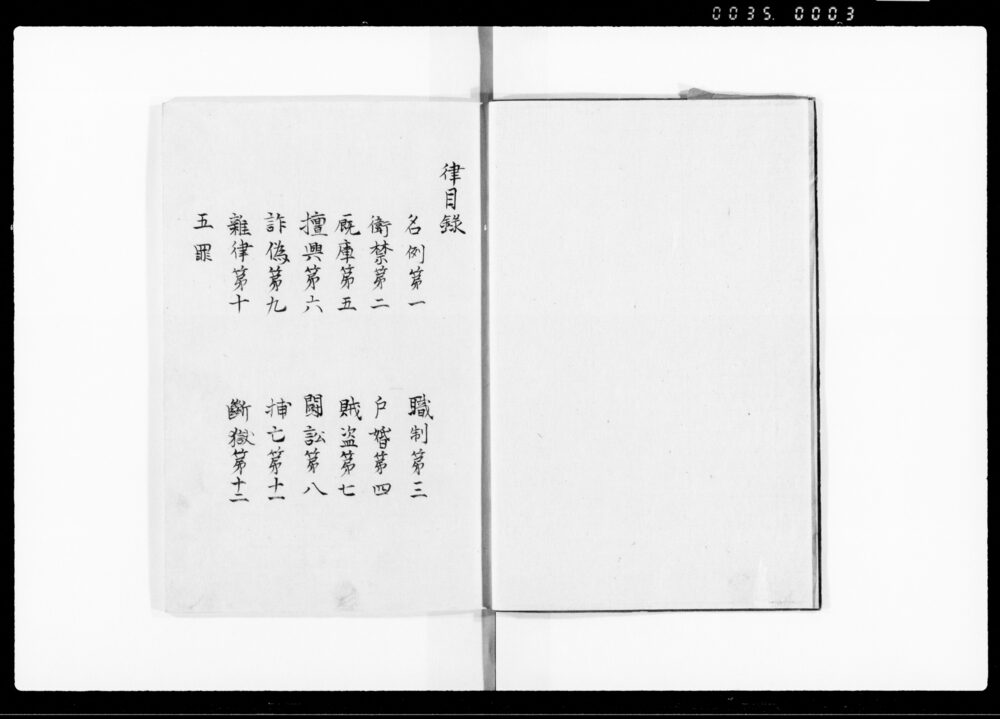 0035. 0003
律目錄
名例第一 職制第三
衛禁第二 戶婚第四
厩庫第五 賊盜第七
擅興第六 鬪訟第八
詐偽第九 捕亡第十一
雜律第十 斷獄第十二
五罪